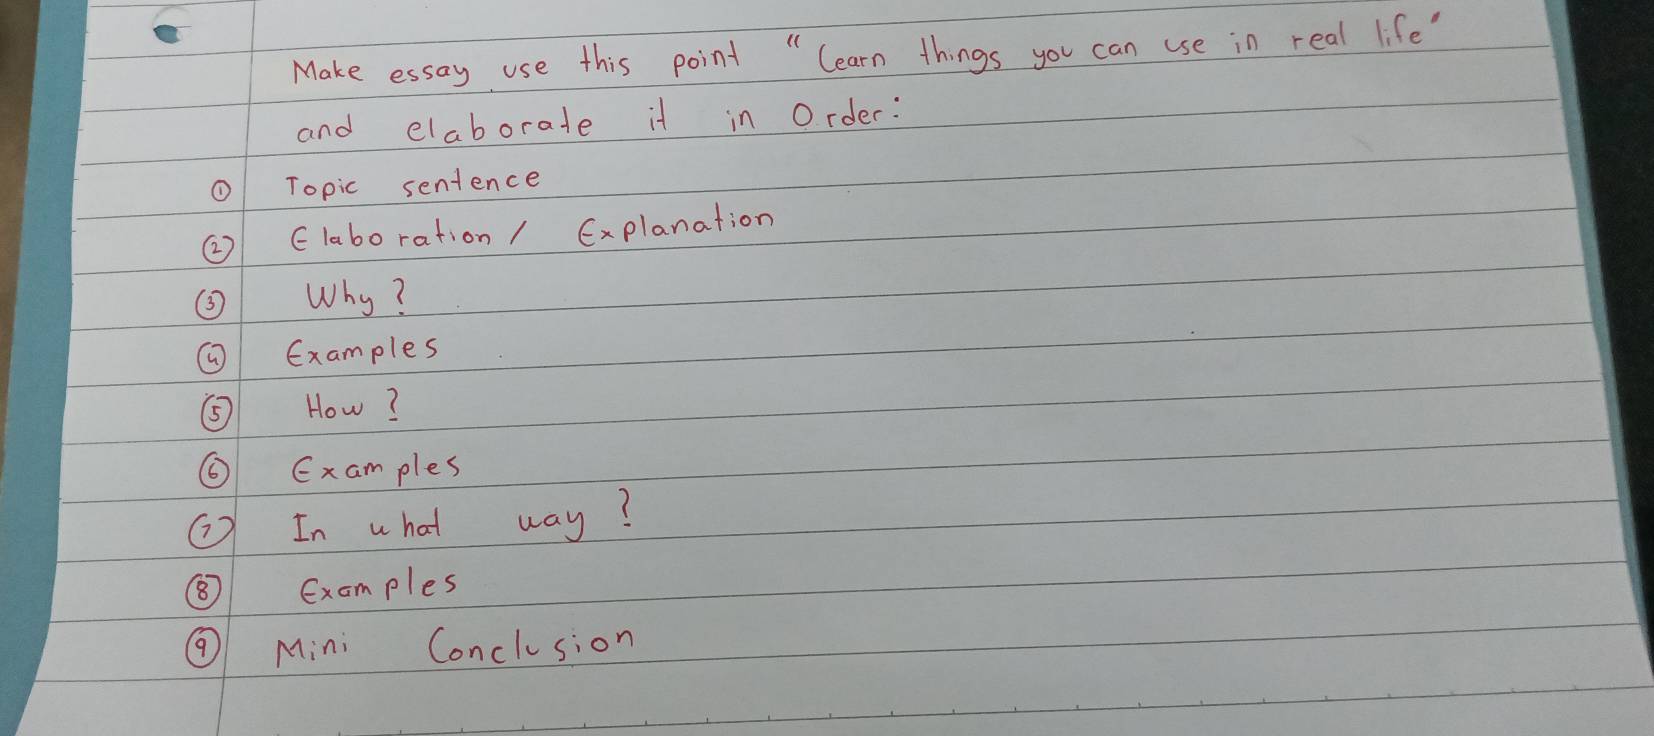 Make essay use this point "Learn things you can use in real life"
and elaborate it in Order:
① Topic sentence
② Elaboration / Explanation
③ Why?
④ Examples
⑤ How?
⑥ Examples
⑦ In what way?
⑧ Examples
⑨ Mini Conclusion